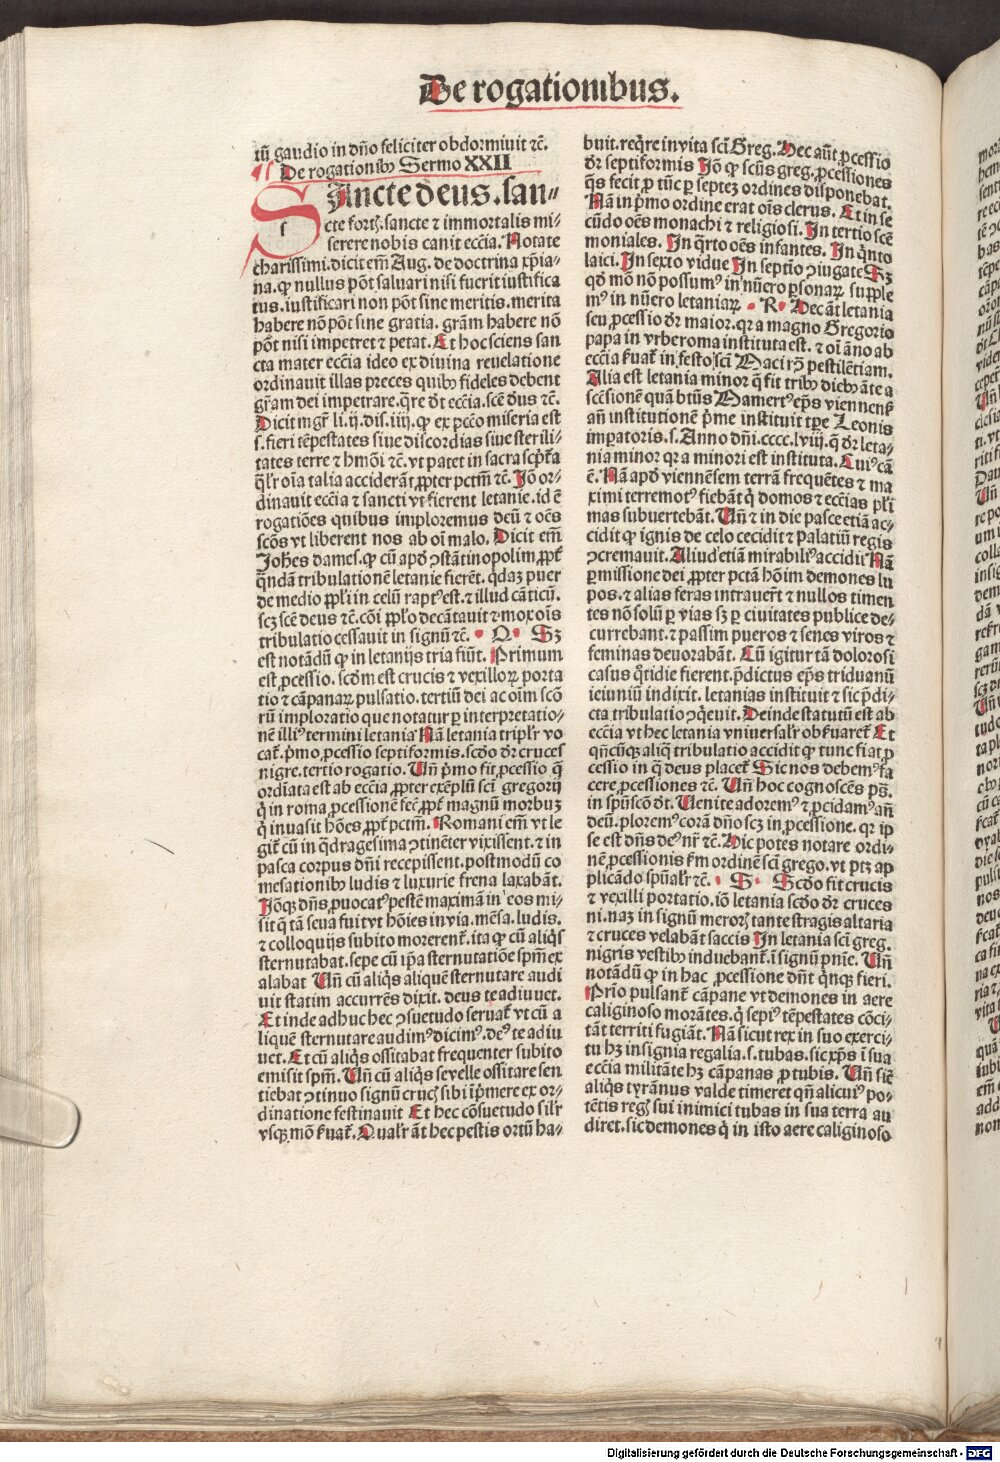 De rogationibus.
tū gaudio in dño feliciter obdormiuit ꝛc̄.
De rogationibꝰ Sermo XXII
SAncte deus. san-
cte fortꝭ. sancte ⁊ immortalis mi-
serere nobis canit eccĩa. Notate
charissimi. dicit em̄ Aug. de doctrina xp̄ia-
na. ꝙ nullus pōt saluari nisi fuerit iustifica
tus. iustificari non pōt sine meritis. merita
habere nō pōt sine gratia. grām habere nō
pōt nisi impetret ⁊ petat. Et hoc sciens san
cta mater eccĩa ideo ex diuina reuelatione
ordinauit illas preces quibꝰ fideles debent
gr̄am dei impetrare. q̄re d̄t eccĩa. scē de̛us ꝛc̄.
Dicit mgr̄ li. ij. dis. iiij. ꝙ ex pctō miseria est
s. fieri tēpestates siue discordias siue sterili-
tates terre ⁊ hmōi ꝛc̄. vt patet in sacra scpt̄a
ql̄r oīa talia acciderāt ꝓpter pctm̄ ꝛc̄. Jō or-
dinauit eccĩa ⁊ sancti vt fierent letanie. id ē
rogatiōes quibus imploremus deū ⁊ oēs
scōs vt liberent nos ab oī malo. Dicit em̄
Johēs damas. ꝙ cū apd̄ ꝯstātinopolim ꝓpt̄
q̄ndā tribulationē letanie fierēt. qdaꝫ puer
de medio ppl̄i in celū raptꝰ est. ⁊ illud cāticū.
scꝫ scē deus ꝛc̄. cōi ppl̄o decātauit ⁊ mox oīs
tribulatio cessauit in signū ꝛc̄. Q. Sꝫ
est notādū ꝙ in letanijs tria fiūt. Primum
est ꝓcessio. scdm̄ est crucis ⁊ vexilloꝝ porta
tio ⁊ cāpanaꝝ pulsatio. tertiū dei ac oīm scō
rū imploratio que notatur ꝑ interpretatio-
nē illiꝰ termini letania Nā letania tripl̄r vo
cat̄. p̄mo ꝓcessio septiformis. scdo d̄r cruces
nigre. tertio rogatio. Un̄ p̄mo fit ꝓcessio q̄
ordīata est ab eccĩa ꝓpter exēplū sci̅ gregorij
q̇ in roma ꝓcessionē fec̄ ꝓpt̄ magnū morbuꝫ
q̇ inuasit hōes ꝓpt̄ pctm̄. Romani em̄ vt le
git̄ cū in q̄dragesima ꝯtinēter vixissent. ⁊ in
pasca corpus dn̄i recepissent. postmodū co
mesationibꝰ ludis ⁊ luxurie frena laxabāt.
Jōqꝫ dn̄s ꝓuocatꝰ pestē maximā in eos mi-
sit q̄ tā seua fuit vt hōies in via. mēsa. ludis.
⁊ colloquijs subito morerent̄. ita ꝙ cū aliq̄s
sternutabat. sepe cū ip̄a sternutatiōe spm̄ ex
alabat Un̄ cū aliq̄s aliquē sternutare audi
uit statim accurrēs dixit. deus te adiuuet.
Et inde adhuc hec ꝯsuetudo seruat̄ vt cū a
liquē sternutare audimꝰ dicimꝰ. deꝰ te adiu
uet. Et cū aliq̄s ossitabat frequenter subito
emisit spm̄. Un̄ cū aliq̄s se velle ossitare sen
tiebat ꝯtinuo signū crucꝭ sibi īp̄mere ex or-
dinatione festinauit Et hec cōsuetudo sil̄r
vsqꝫ mō ẜuat̄. Qual̄r āt hec pestis ortū ha-
buit. req̄re in vita sci̅ Greg. Hec aūt ꝓcessio
d̄r septiformis Jō ꝙ scūs greg. ꝓcessiones
q̄s fecit ꝓ tūc ꝑ septeꝫ ordines disponebat.
Nā in p̄mo ordine erat oīs clerus. Et in se
cūdo oēs monachi ⁊ religiosi. Jn tertio scē
moniales. Jn q̄rto oēs infantes. Jn q̄nto
laici. Jn sexto vidue Jn septīo ꝯiugate Sꝫ
qd̄ mō nō possumꝰ in nūero ꝑsonaꝝ supple
mꝰ in nūero letaniaꝝ. R. Hec āt letania
seu ꝓcessio d̄r maior. qr a magno Gregorio
papa in vrbe roma instituta est. ⁊ oī āno ab
eccĩa ẜuat̄ in festo sci̅ Maci ꝓꝑ pestilētiam.
Alia est letania minor q̄ fit tribꝰ diebꝰ āte a
scēsionē quā btūs Mamertꝰ ep̄s viennen̄
an̄ institutionē p̄me instituit tꝑe Leonis
imꝑatoris. s. Anno dn̄i. cccc. lviij. q̄ d̄r leta-
nia minor qr a minori est instituta. Cuiꝰ cā
ē. Nā apd̄ viennēsem terrā frequētes ⁊ ma
ximi terremotꝰ fiebāt q̇ domos ⁊ eccĩas pl̄i
mas subuertebāt. Un̄ ⁊ in die pasce etiā ac-
cidit ꝙ ignis de celo cecidit ⁊ palatiū regis
ꝯcremauit. Aliud etiā mirabiliꝰ accidit Nā
ꝑmissione dei ꝓpter pctā hōim demones lu
pos. ⁊ alias feras intrauer̄t ⁊ nullos timen
tes nō solū ꝑ vias sꝫ ꝑ ciuitates publice de-
currebant. ⁊ passim pueros ⁊ senes viros ⁊
feminas deuorabāt. Cū igitur tā dolorosi
casus q̄tidie fierent. p̄dictus ep̄s triduanū
ieiuniū indixit. letanias instituit ⁊ sic p̄di-
cta tribulatio ꝯq̇euit. Deinde statutū est ab
eccĩa vt hec letania vniuersal̄r obẜuaret̄ Et
qn̄cūqꝫ aliq̄ tribulatio accidit ꝙ tunc fiat ꝓ
cessio in q̄ deus placet̄ Sic nos debemꝰ fa
cere ꝓcessiones ꝛc̄. Un̄ hoc cognoscēs ps̄.
in spūscō d̄t. Uenite adoremꝰ ⁊ ꝓcidamꝰ an̄
deū. ploremꝰ corā dn̄o scꝫ in ꝓcessione. qr ip
se est dn̄s deꝰ nr̄ ꝛc̄. Hic potes notare ordi-
nē ꝓcessionis ẜm ordinē sci̅ grego. vt ptꝫ ap
plicādo spūal̄r ꝛc̄. S. Scdo fit crucis
⁊ vexilli portatio. iō letania scdo d̄r cruces
ni. naꝫ in signū merorꝭ tante stragis altaria
⁊ cruces velabāt saccis Jn letania sci̅ greg.
nigris vestibꝰ induebant̄. ī signū pn̄ie. Un̄
notādū ꝙ in hac ꝓcessione dn̄t q̄nqꝫ fieri.
Prīo pulsant̄ cāpane vt demones in aere
caliginoso morātes. q̇ sepiꝰ tēpestates cōci-
tāt territi fugiāt. Nā sicut rex in suo exerci-
tu hꝫ insignia regalia. s. tubas. sic xp̄s ī sua
eccĩa militāte hꝫ cāpanas ꝓ tubis. Un̄ sic̄
aliq̄s tyrānus valde timeret qn̄ alicuiꝰ po-
tētis regꝭ sui inimici tubas in sua terra au
diret. sic demones q̇ in isto aere caliginoso
Digitalisierung gefördert durch die Deutsche Forschungsgemeinschaft - DFG